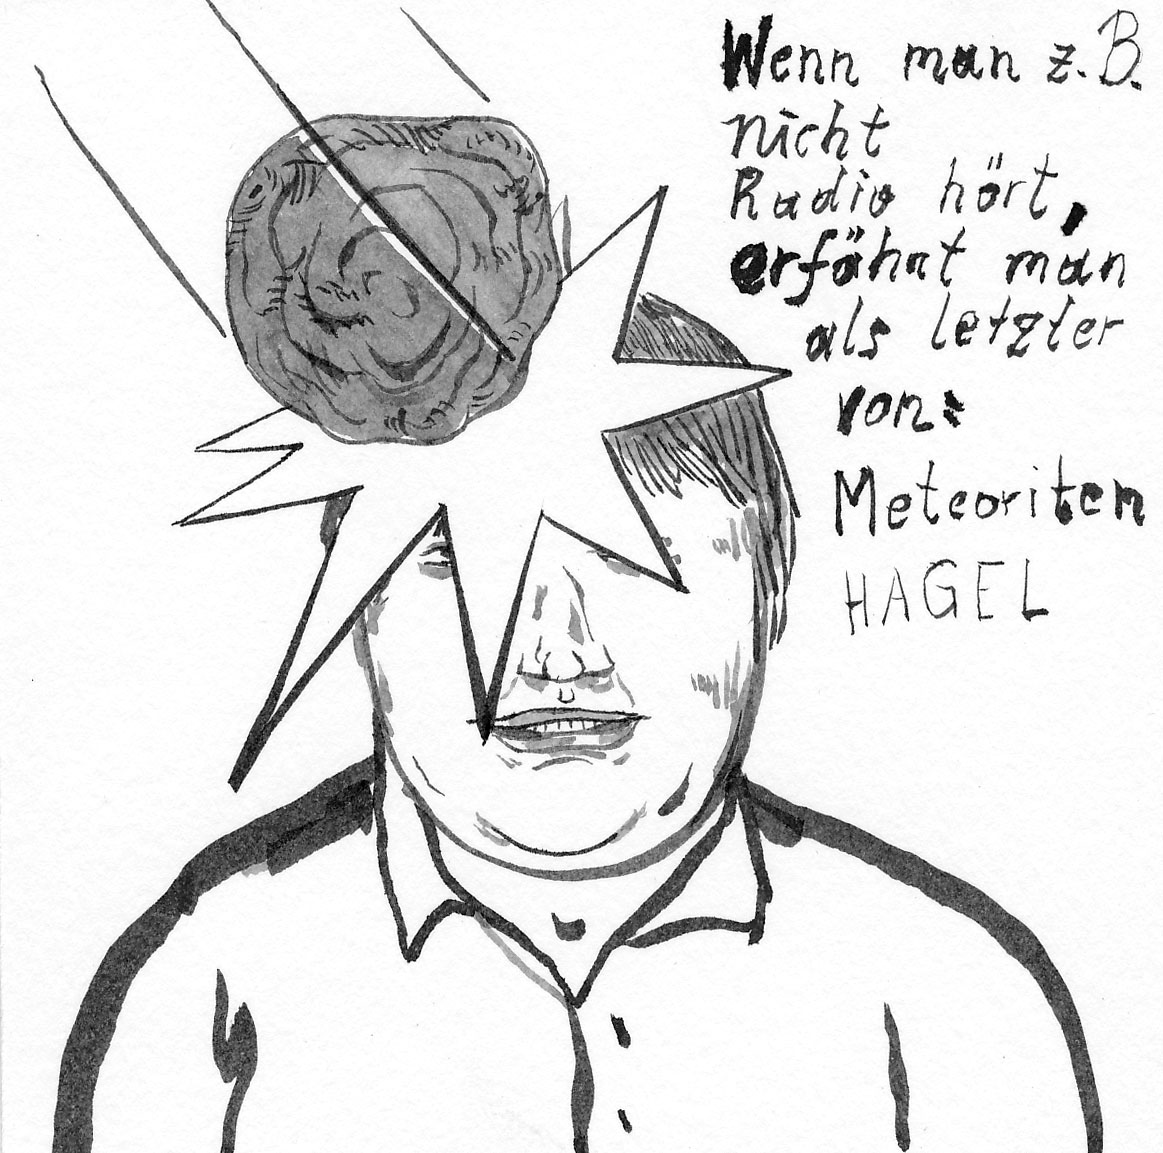 Wenn man z.B.
nicht
Radio hört,
erfährt man
als letzter
von:
Meteoriten
HAGEL